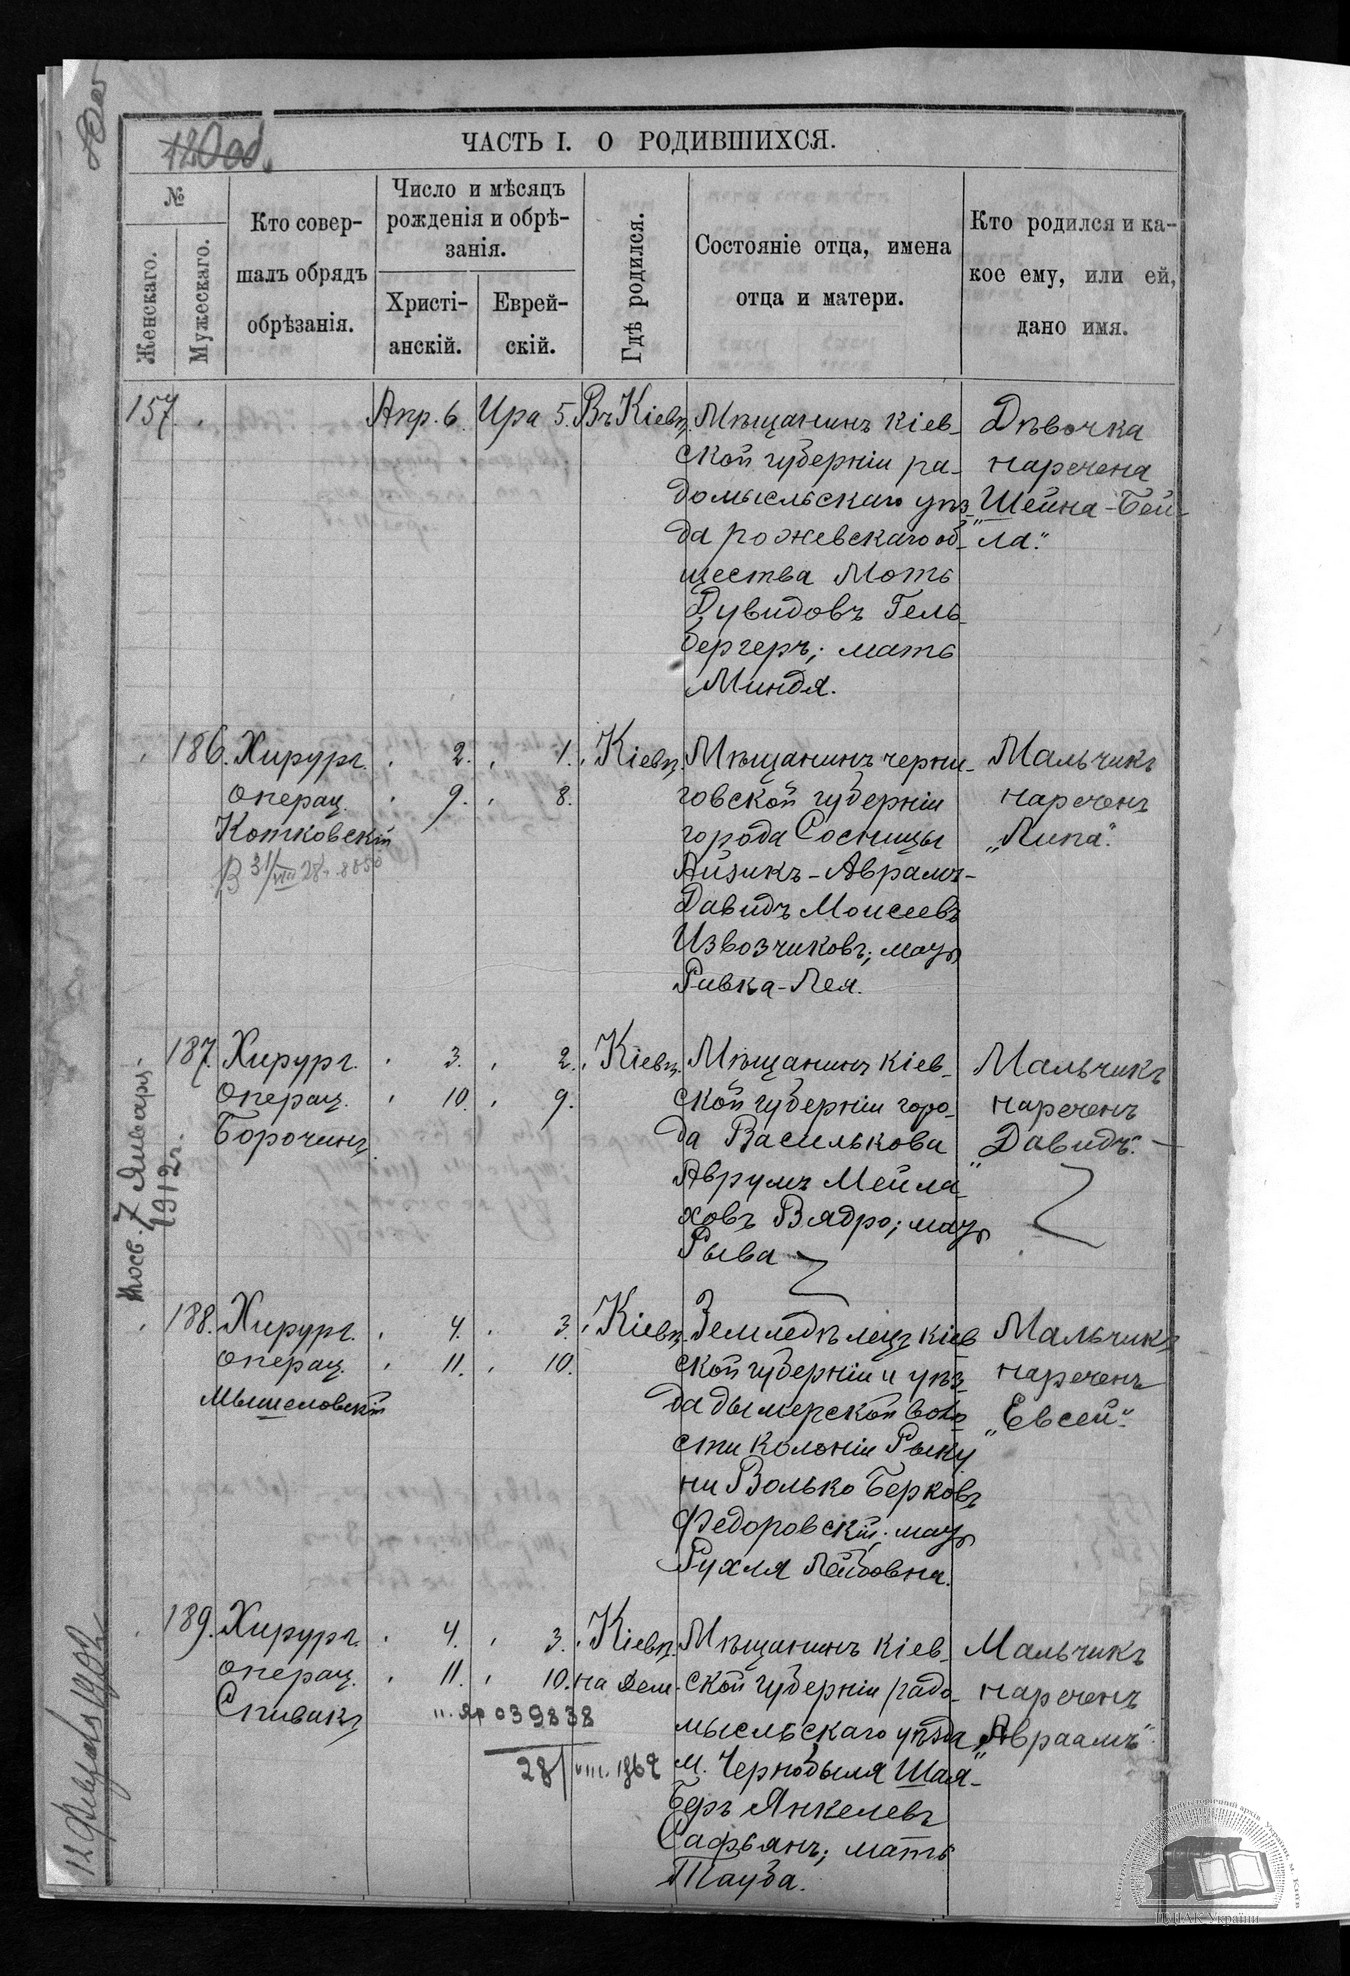 120 об.
ЧАСТЬ I. О РОДИВШИХСЯ.
№
Женскаго.
Мужескаго.
Кто совер-
шалъ обрядъ
обрѣзанія.
Число и мѣсяцъ
рожденія и обрѣ-
занія.
Христі-
анскій.
Еврей-
скій.
Гдѣ родился.
Состояніе отца, имена
отца и матери.
Кто родился и ка-
кое ему, или ей,
дано имя.
157. Апр. 6. Ира 5. Въ Кіевѣ
Мѣщанинъ кіев-
ской губерніи ра-
домысльскаго уѣз-
да рожевскаго об-
щества Моть
Дувидовъ Гель-
бергеръ; мать
Миндя.
Дѣвочка
наречена
„Шейна-Бей-
ла".
186. Хирург. 2. 1. Кіевѣ
операц. 9. 8.
Котковскій
В 31/VIII 28
Мѣщанинъ черни-
говской губерніи
города Сосницы
Айзикъ-Аврамъ-
Давидъ Моисеевъ
Извозчиковъ; мать
Ривка-Лея.
Мальчикъ
нареченъ
„Липа".
187. Хирург. 3. 2. Кіевѣ
операц. 10. 9.
Борочинъ
Мѣщанинъ кіев-
ской губерніи горо-
да Василькова
Аврумъ Мейла-
ховъ Вядро; мать
Рыва
Мальчикъ
нареченъ
„Давидъ".
7 Январ.
1912 г.
188. Хирург. 4. 3. Кіевѣ
операц. 11. 10.
Мышеловскій
Земледѣлецъ кіев
ской губерніи и уѣз-
да дымерской воло
сти колоніи Рыку
ни Волько Берковъ
Федоровскій; мать
Рухля Лейбовна.
Мальчикъ
нареченъ
„Евсей".
189. Хирург. 4. 3. Кіевѣ
операц. 11. 10. на Дем.
Спивакъ
039838
28/VIII.
Мѣщанинъ кіев-
ской губерніи радо-
мысльскаго уѣзда
м. Чернобыля Шая-
Беръ Янкелевъ
Сафьянъ; мать
Тауба.
Мальчикъ
нареченъ
„Авраамъ".
12 1902
ЦДІАК України